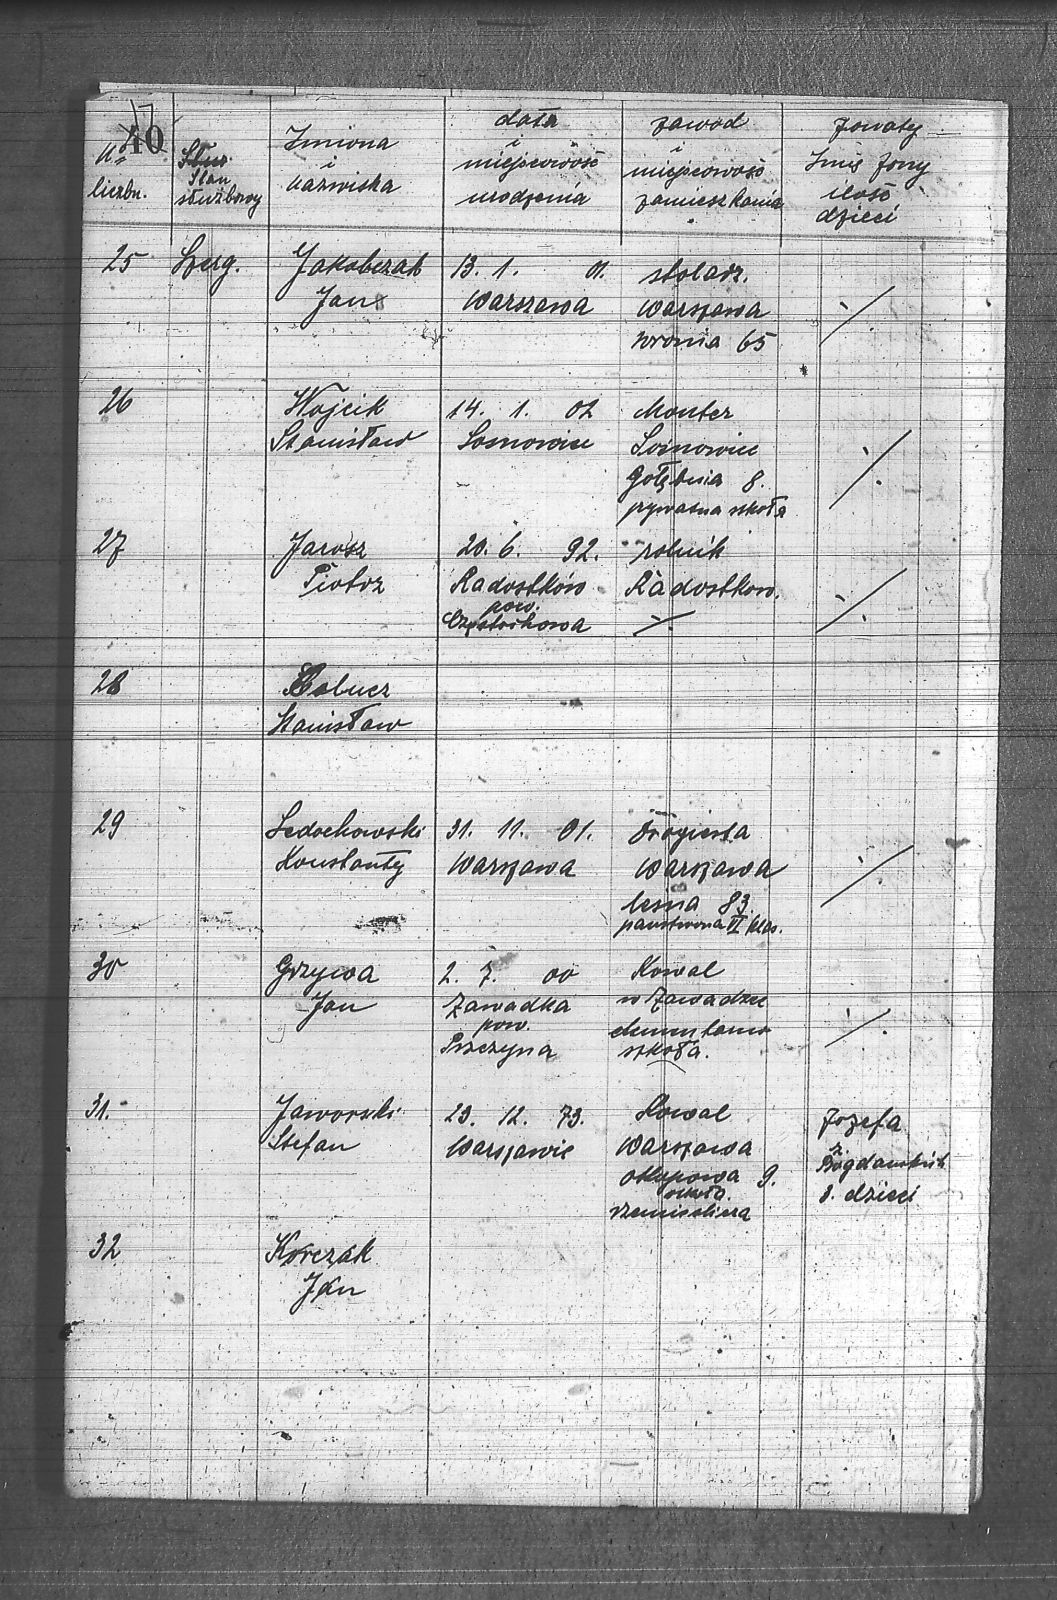 17
40
N° liczbn.
Stan służbowy
Imiona i nazwiska
data i miejscowość urodzenia
zawód i miejscowość zamieszkania
żonaty Imię żony ilość dzieci
25 Szerg. Jakobczak 13. 1. 01. stolarz.
Jan Warszawa Warszawa
wronia 65
26 Wojcik 14. 1. 02 Monter
Stanisław Sosnowice Sosnowice
Gołębia 8.
prywatna szkoła
27 Jarosz 20. 6. 92. rolnik
Piotr Radostków Radostkow.
pow.
Częstochowa
28
Stanisław
29 Ledochowski 31. 11. 01.
Konstanty Warszawa Warszawa
lesna 83
państwowa VI klas.
30 Grzywa 2. 7. 00 Kowal
Jan Zawadka w Zawadzce
pow.
Pszczyna szkoła.
31. Jaworski 23. 12. 73. Kowal Jozefa
Stefan Warszawie Warszawa z.
Okopowa 9. Bogdanskich
szkoła. 8. dzieci
rzemieslicza
32 Korczak
Jan